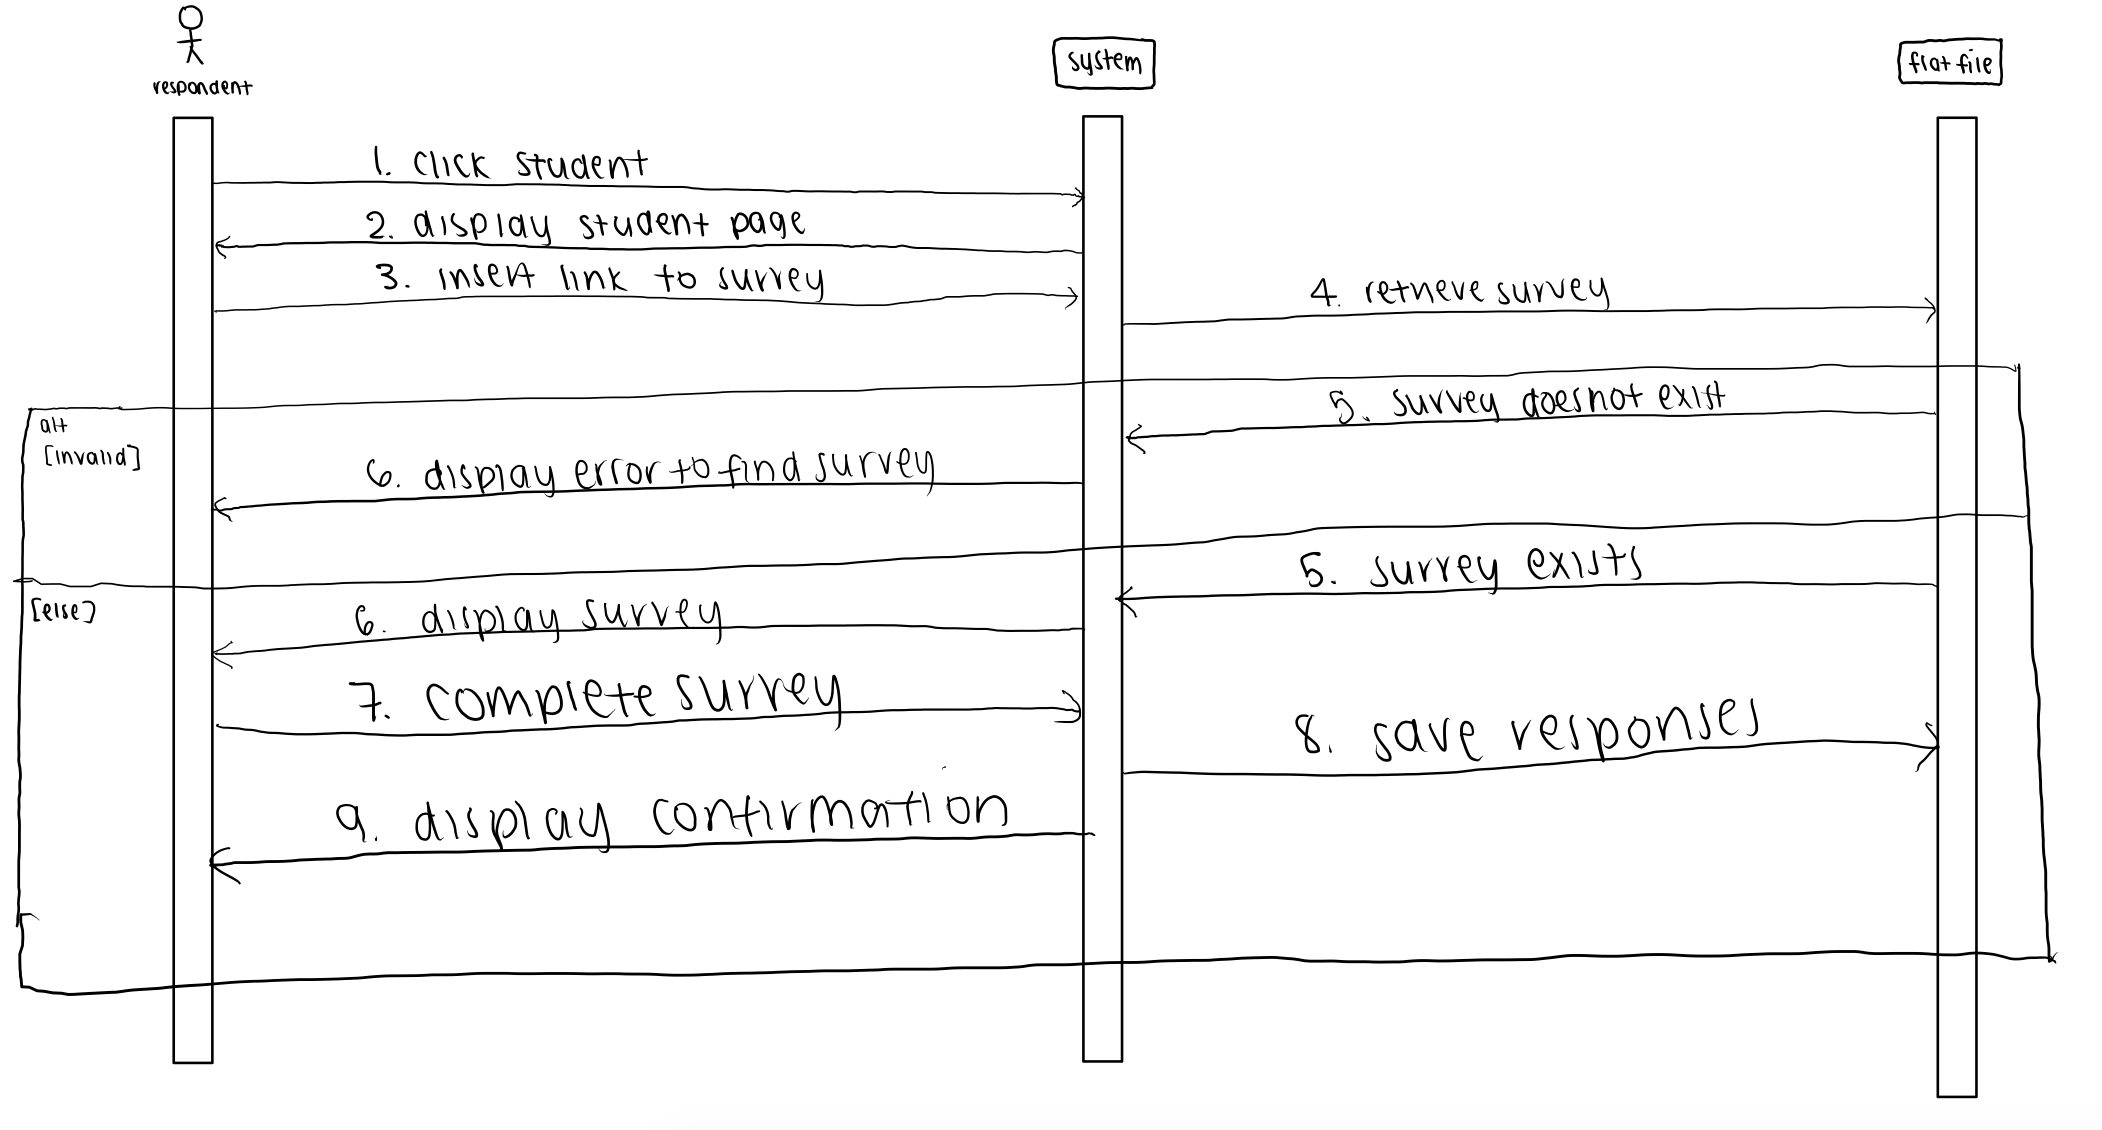 respondent
system
flat file
1. click student
2. display student page
3. insert link to survey
4. retrieve survey
alt
[invalid]
5. survey does not exist
6. display error to find survey
[else]
5. survey exists
6. display survey
7. complete survey
8. save responses
9. display confirmation